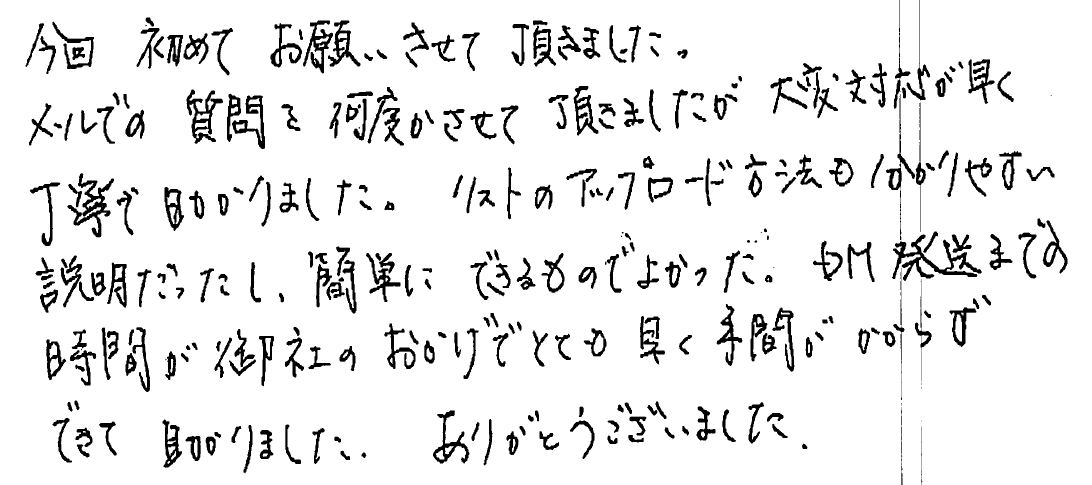 今回 初めて お願いさせて 頂きました。
メールでの 質問を 何度かさせて 頂きましたが 大変対応が早く
丁寧で 助かりました。 リストのアップロード方法も分かりやすい
説明だったし、簡単に できるものでよかった。 DM発送までの
時間が御社の おかげでとても 早く手間が かからず
できて 助かりました. ありがとうございました.